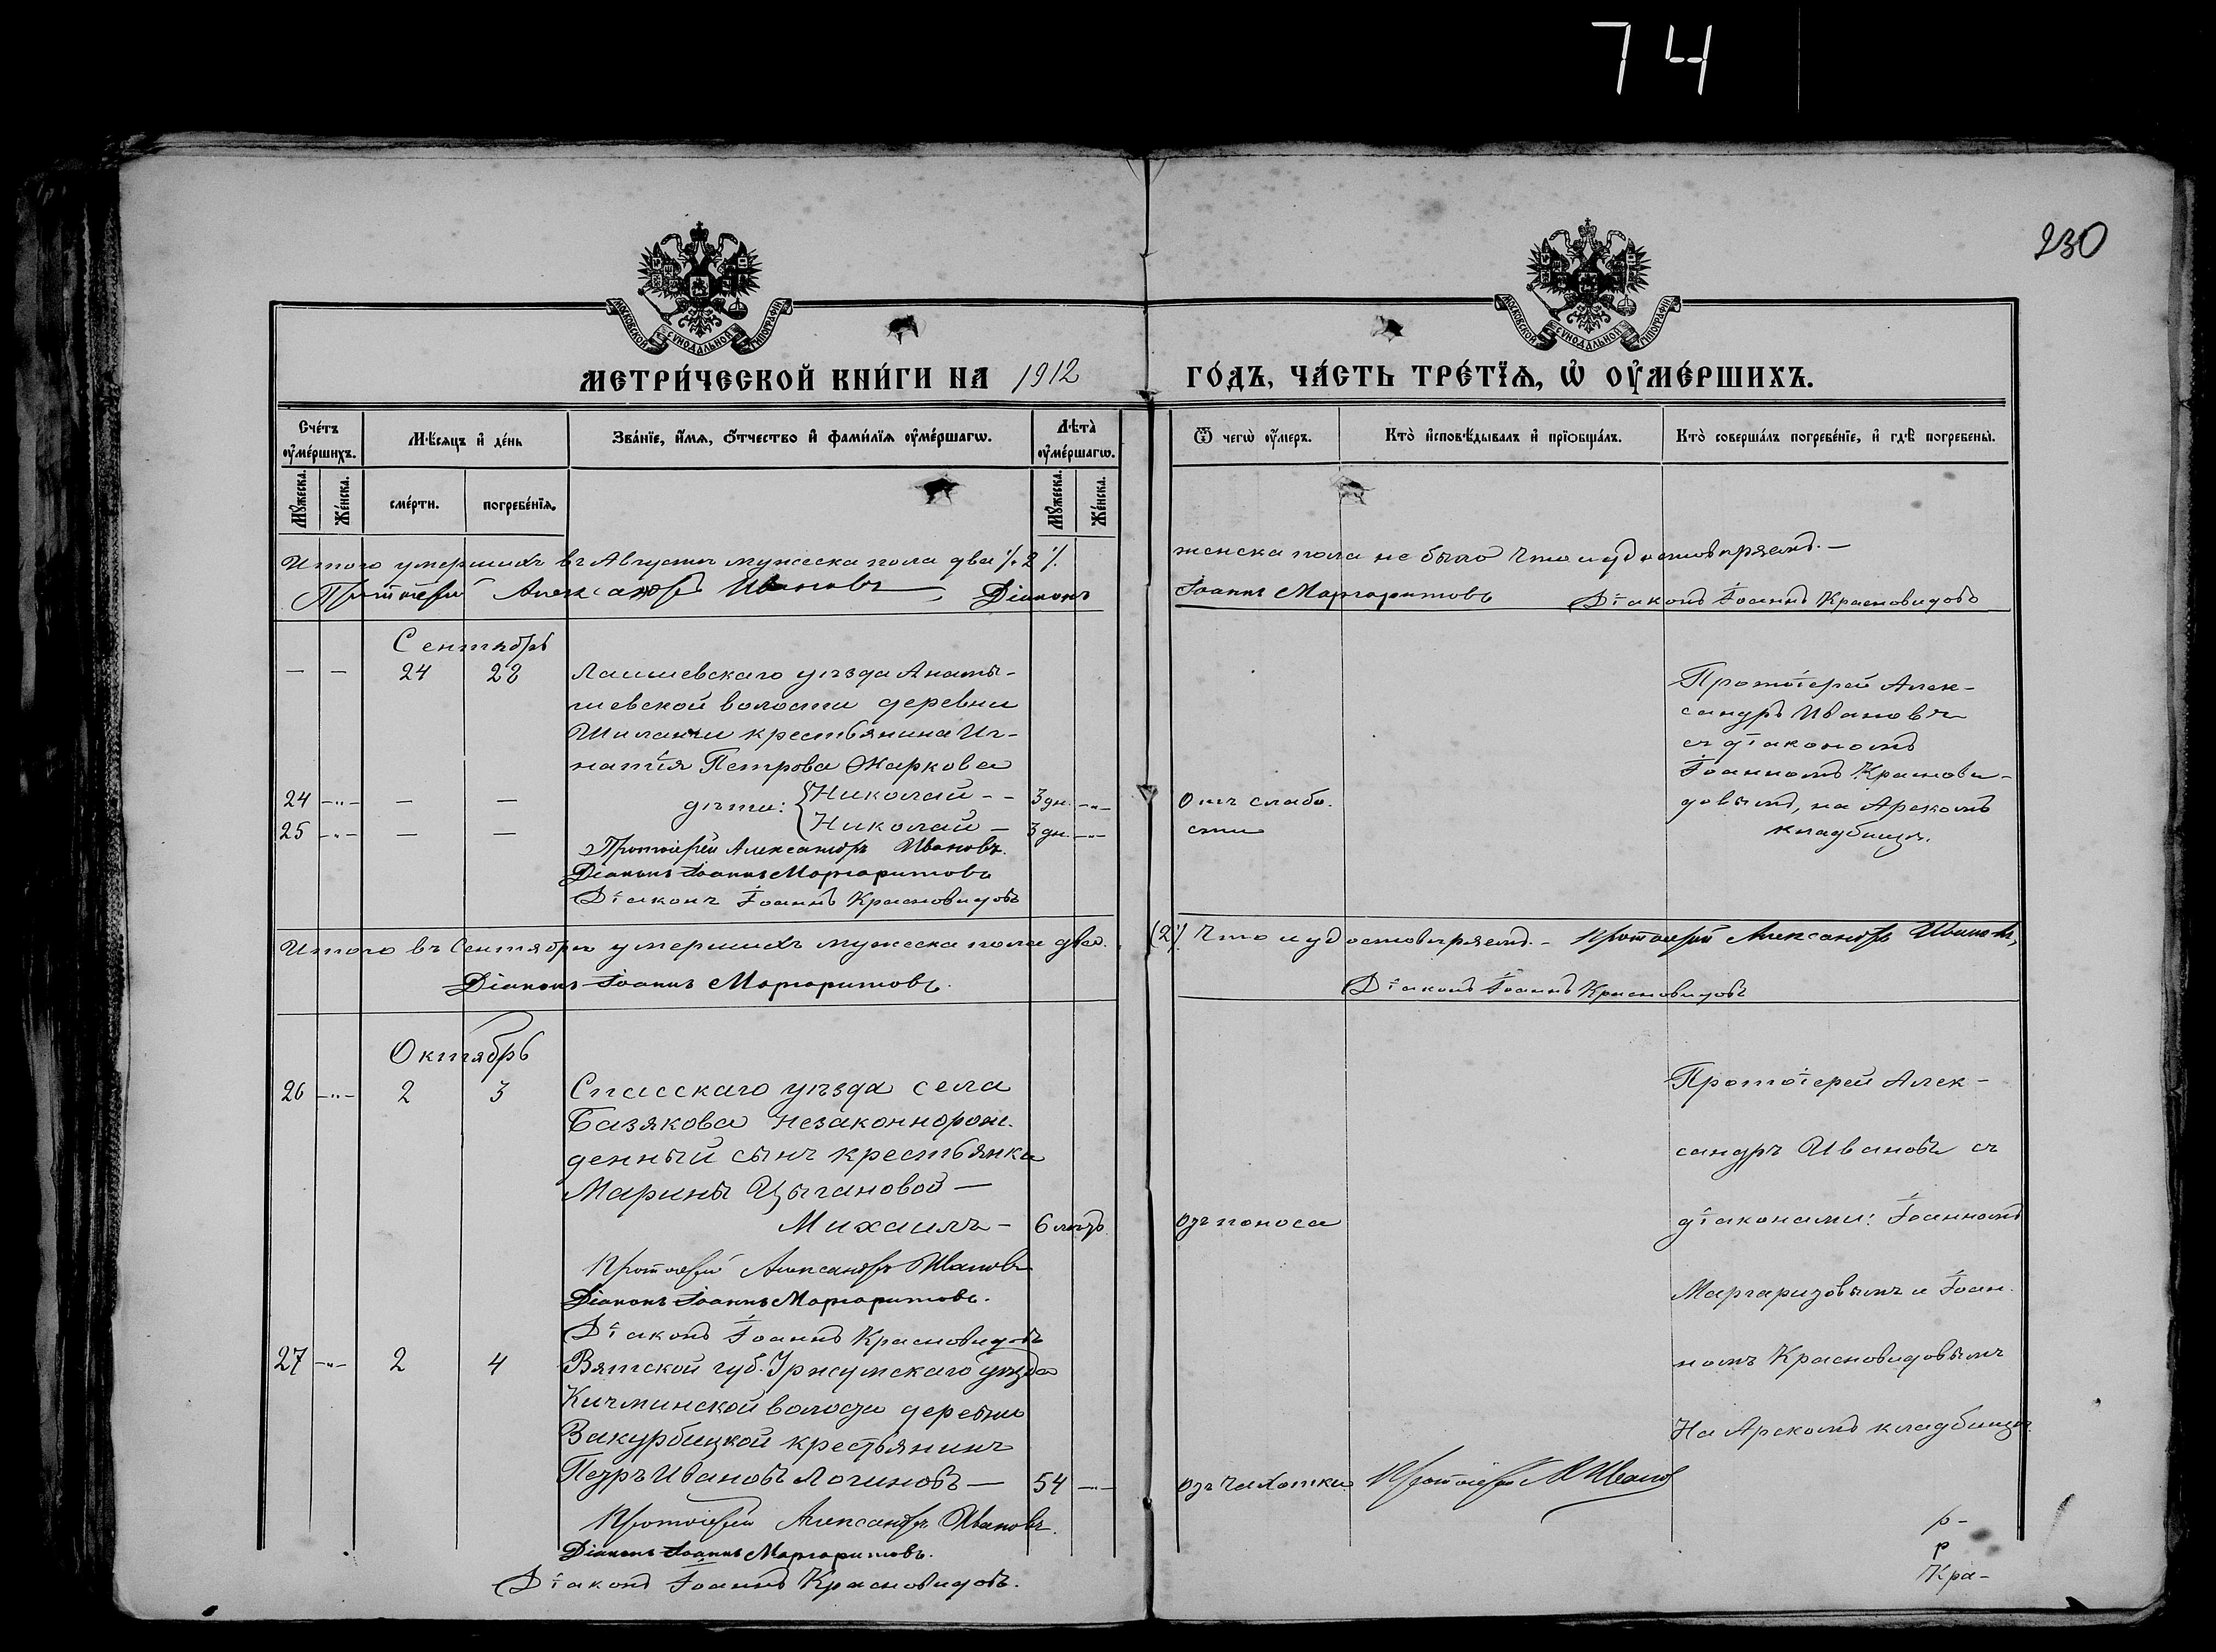 74
230
МОСКОВСКОЙ СѴНОДАЛЬНОЙ ТИПОГРАФІИ
МОСКОВСКОЙ СѴНОДАЛЬНОЙ ТИПОГРАФІИ
МЕТРИ́ЧЕСКОЙ КНИ́ГИ НА 1912 ГО́ДЪ, ЧА́СТЬ ТРЕ́ТЇѦ, Ѡ҆ ОУ҆МЕ́РШИХЪ.
Сче́тъ оу҆ме́ршихъ.
Мѣ́сяцъ и҆ де́нь
Зва́нїе, и҆́мѧ, ѻ҆́тчество и҆ фамѝлїѧ оу҆ме́ршагѡ.
Лѣта̀ оу҆ме́ршагѡ.
Ѿ чегѡ̀ оу҆́меръ.
Кто̀ и҆сповѣ́дывалъ и҆ прїѻбща́лъ.
Кто̀ соверша́лъ погребе́нїе, и҆ гдѣ̀ погребены̀.
Мꙋ́жеска.
Же́нска.
сме́рти.
погребе́нїѧ.
Мꙋ́жеска.
Же́нска.
Итого умершихъ въ Августѣ мужеска пола два /. 2 /. женска пола не было Что и удостовѣряемъ. —
Протоіерей Александръ Ивановъ, Діаконъ Іоаннъ Маргаритовъ Діаконъ Іоаннъ Красновидовъ
Сентябрь
— — 24 28 Лаишевскаго уѣзда Анаты-
шевской волости деревни
Шиланги крестьянина Иг-
натія Петрова Жаркова
24 -"- — — дѣти: { Николай - - 3 дн. -"-
25 -"- — — Николай — 3 дн. -"-
Отъ слабо-
сти
Протоіерей Алек-
сандръ Ивановъ
съ діакономъ
Іоанномъ Краснови-
довымъ, на Арскомъ
кладбищѣ.
Протоіерей Александръ Ивановъ.
Діаконъ Іоаннъ Маргаритовъ
Діаконъ Іоаннъ Красновидовъ
Итого въ Сентябрѣ умершихъ мужеска пола два. (2/. Что и удостовѣряемъ. - Протоіерей Александръ Ивановъ,
Діаконъ Іоаннъ Маргаритовъ. Діаконъ Іоаннъ Красновидовъ
Октябрь
26 -"- 2 3 Спасскаго уѣзда села
Базякова незаконнорож-
денный сынъ крестьянки
Марины Цыгановой —
Михаилъ - 6 мѣс.
отъ поноса
Протоіерей Алек-
сандръ Ивановъ съ
діаконами: Іоанномъ
Маргаритовымъ и Іоан-
номъ Красновидовымъ
На Арскомъ кладбищѣ.
Протоіерей Александръ Ивановъ
Діаконъ Іоаннъ Маргаритовъ.
Діаконъ Іоаннъ Красновидовъ
27 -"- 2 4 Вятской губ. Уржумскаго уѣзда
Кичминской волости деревни
Вакурбицкой крестьянинъ
Петръ Ивановъ Логиновъ — 54 -"-
отъ чахотки Протоіерей А Иванов
Протоіерей Александръ Ивановъ.
Діаконъ Іоаннъ Маргаритовъ.
Діаконъ Іоаннъ Красновидовъ.
р-
р
Кра-